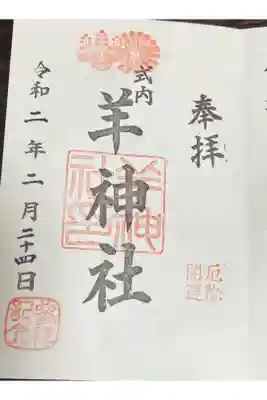 奉拝
厄除
開運
式内
羊神社
羊神社印
令和二年二月二十四日